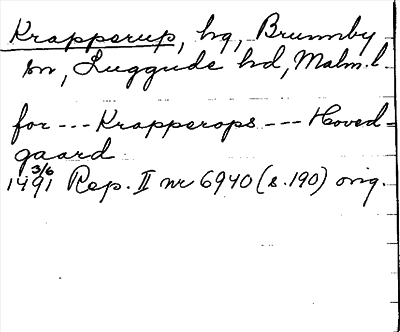 Krapperup, hg, Brunnby
sn, Luggude hd, Malm.l.
for --- Krapperops --- Hoved-
gaard
1491 3/6 Rep. II nr 6940 (s.190) orig.